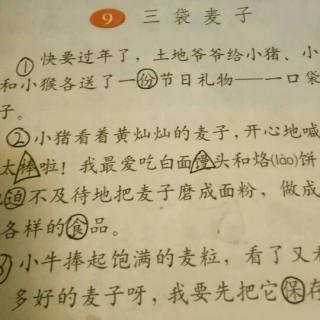 9 三袋麦子
① 快要过年了，土地爷爷给小猪、小
和小猴各送了一份节日礼物——一口袋
子。
② 小猪看着黄灿灿的麦子，开心地喊
太棒啦！我最爱吃白面馒头和烙(lào)饼
迫不及待地把麦子磨成面粉，做成
各样的食品。
小牛捧起饱满的麦粒，看了又
多好的麦子呀，我要先把它保存